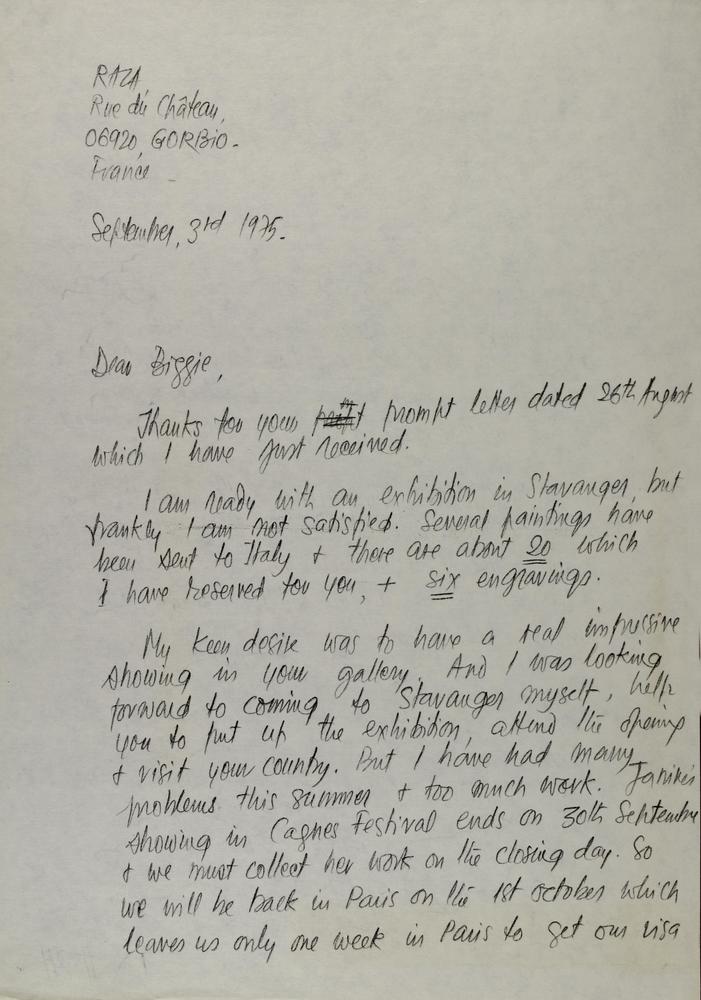 RAZA,
Rue du Château,
06920, GORBIO -
France -
September, 3rd 1975.
Dear Biggie,
Thanks for your prompt letter dated 26th August
which I have just received.
I am ready with an exhibition in Stavanger, but
frankly I am not satisfied. Several paintings have
been sent to Italy + there are about 20 which
I have reserved for you, + six engravings.
My keen desire was to have a real impressive
showing in your gallery. And I was looking
forward to coming to Stavanger myself, help
you to put up the exhibition, attend the opening
+ visit your country. But I have had many
problems this summer + too much work. Janine's
showing in Cagnes Festival ends on 30th September
+ we must collect her work on the closing day. So
we will be back in Paris on the 1st october which
leaves us only one week in Paris to get our visa